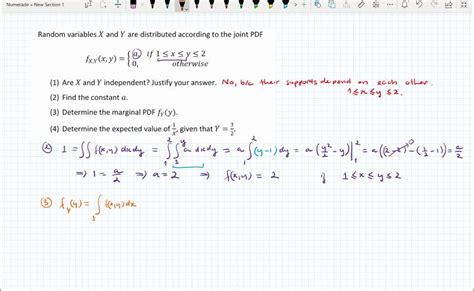 Numerade » New Section 1
Random variables X and Y are distributed according to the joint PDF
f_{X,Y}(x, y) = { a, if 1 ≤ x ≤ y ≤ 2
0, otherwise
(1) Are X and Y independent? Justify your answer. No, b/c their supports depend on each other.
1 ≤ x ≤ y ≤ 2.
(2) Find the constant a.
(3) Determine the marginal PDF f_Y(y).
(4) Determine the expected value of 1/X, given that Y = 3/2.
② 1 = ∫∫ f(x,y) dx dy = ∫_1^2 ∫_1^y a dx dy = a ∫_1^2 (y-1) dy = a (y²/2 - y) |_1^2 = a ((2-2) - (1/2 - 1)) = a/2
⇒ 1 = a/2 ⇒ a = 2 ⇒ f(x,y) = 2 if 1 ≤ x ≤ y ≤ 2
③ f_Y(y) = ∫_1 f(x,y) dx